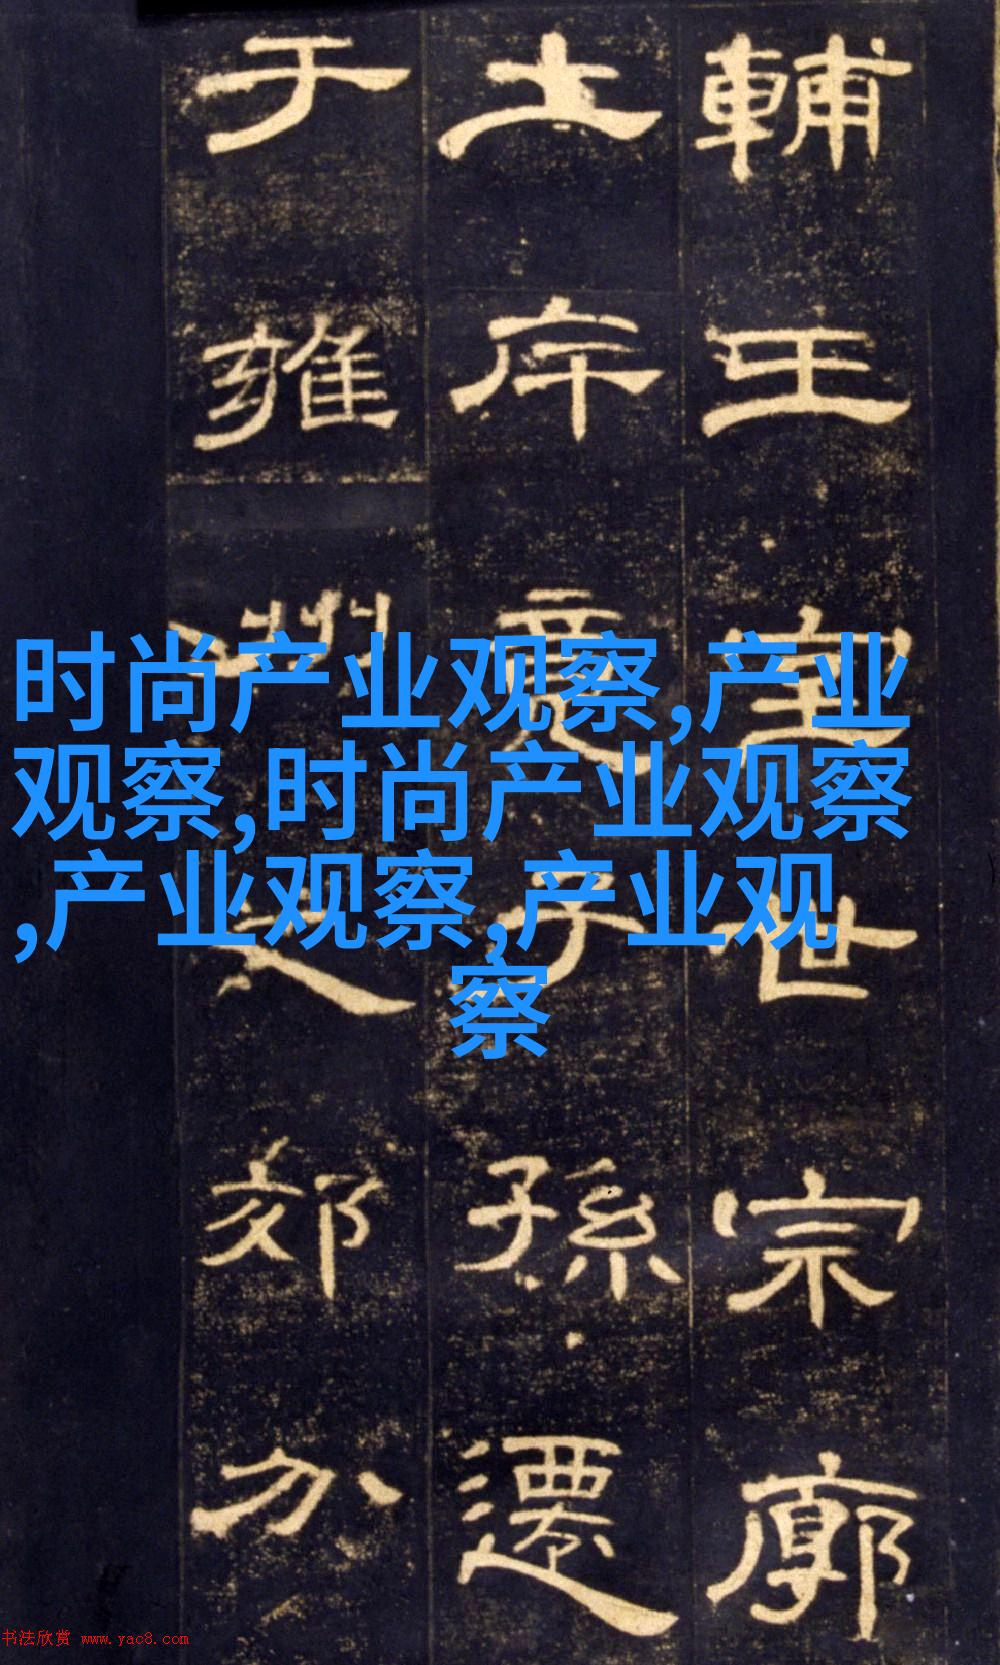 輔王室世宗廓
土斥竟子孫遷
于雍州之郊分
时尚产业观察,产业
观察,时尚产业观察
,产业观察,产业观
察
书法欣赏 www.yac8.com